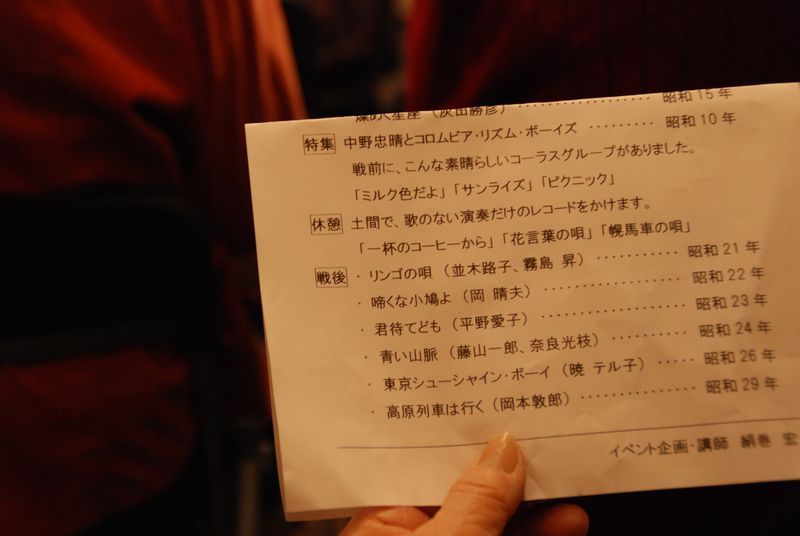 煌めく星座（灰田勝彦）・・・・・・・・・・・・・・・・ 昭和15年
特集 中野忠晴とコロムビア・リズム・ボーイズ ・・・・・・・・・ 昭和10年
戦前に、こんな素晴らしいコーラスグループがありました。
「ミルク色だよ」「サンライズ」「ピクニック」
休憩 土間で、歌のない演奏だけのレコードをかけます。
「一杯のコーヒーから」「花言葉の唄」「幌馬車の唄」
戦後 ・リンゴの唄（並木路子、霧島 昇）・・・・・・・・・・・ 昭和21年
・啼くな小鳩よ（岡 晴夫）・・・・・・・・・・・・・・・・ 昭和22年
・君待てども（平野愛子）・・・・・・・・・・・・・・・・・ 昭和23年
・青い山脈（藤山一郎、奈良光枝）・・・・・・・・・・ 昭和24年
・東京シューシャイン・ボーイ（暁 テル子）・・・・・ 昭和26年
・高原列車は行く（岡本敦郎）・・・・・・・・・・・・・・ 昭和29年
イベント企画・講師 絹巻 宏